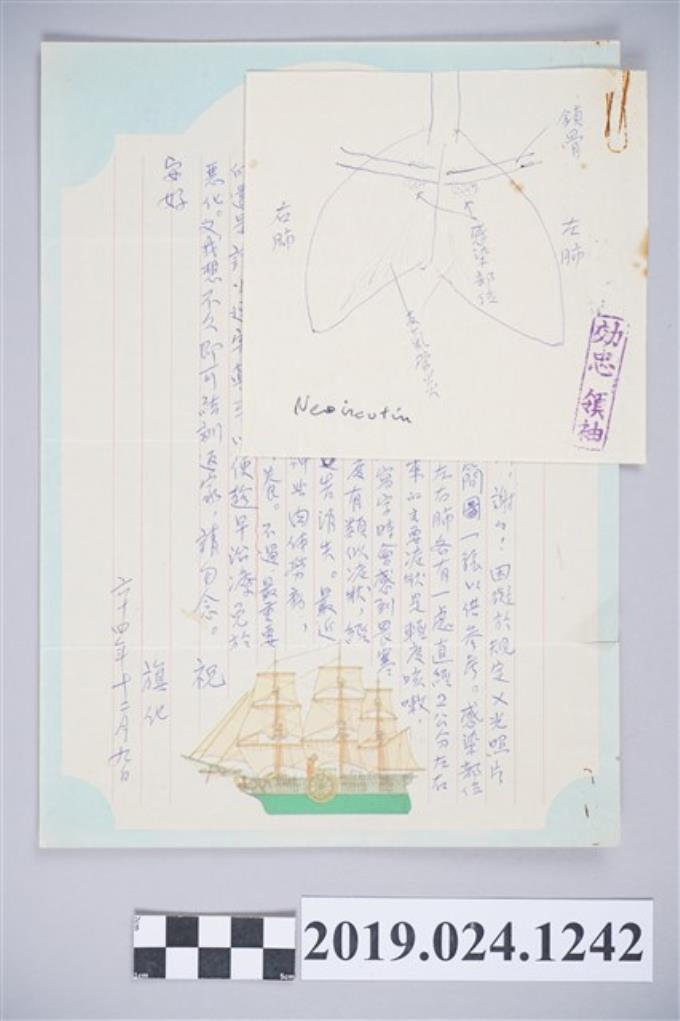 鎖骨
右肺
左肺
感染部位
支氣管炎
効忠領袖
謝々!因礙於規定X光照片
簡圖一張以供參考。感染部位
左右肺各有一處直經2公分左右
來的主要症狀是輕度咳嗽,
寫字時會感到畏寒,
度有類似症狀,經
告消失。最近
肉体勞動,
養。不過,最重要
以便趁早治療免於
惡化。又我想不久即可結訓返家,請勿念。祝
安好
旗化
六十四年十二月九日
2019.024.1242